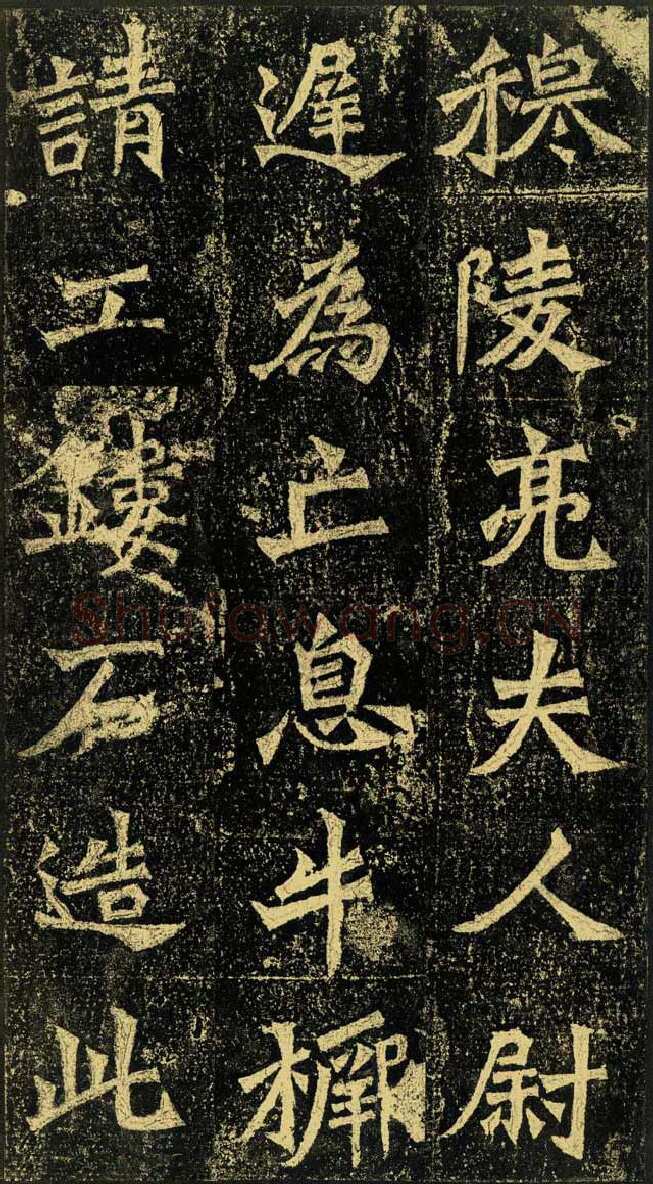 穆陵亮夫人尉
遟為亡息牛橛
請工鏤石造此
Shufawang.CN